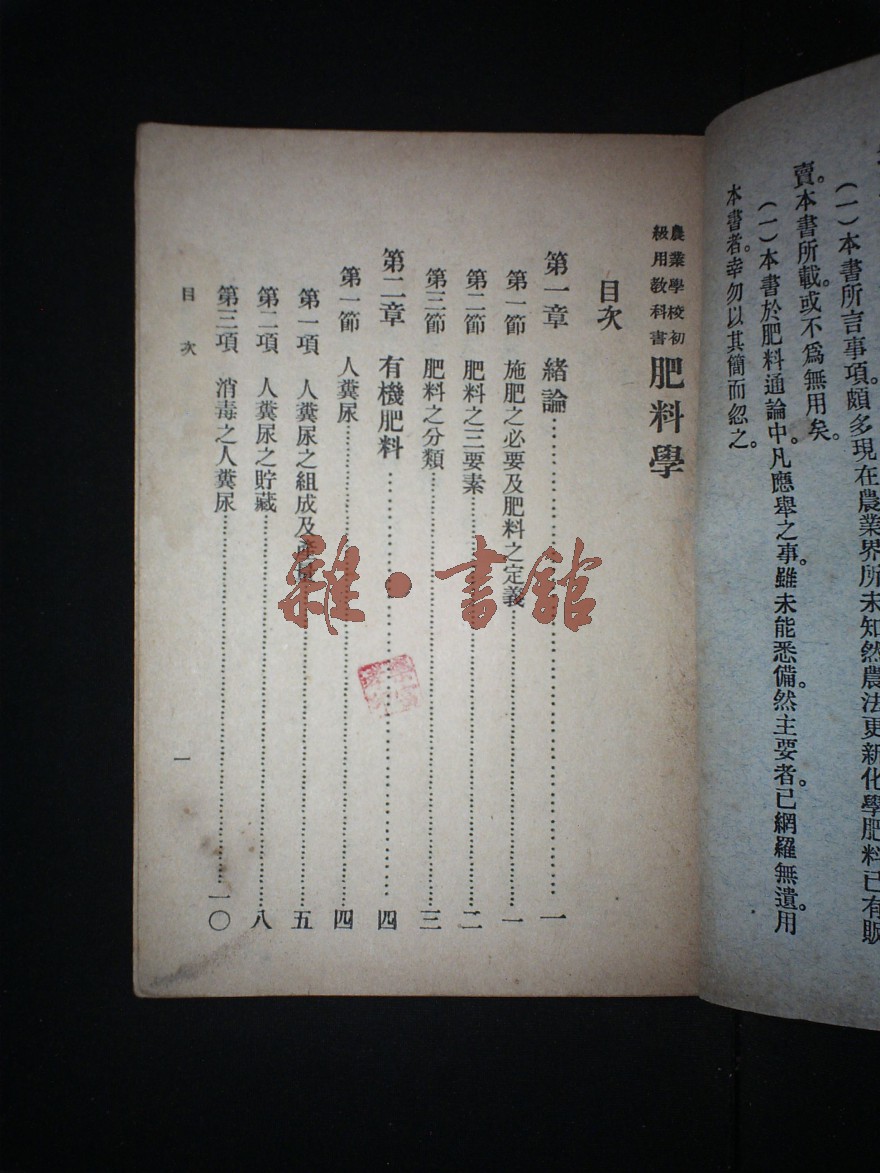 (一)本書所言事項。頗多現在農業界所未知然農法更新化學肥料已有販
賣。本書所載。或不爲無用矣。
(一)本書於肥料通論中。凡應舉之事。雖未能悉備。然主要者。已網羅無遺。用
本書者。幸勿以其簡而忽之。
農業學校初
級用教科書
肥料學
目次
第一章 緒論……一
第一節 施肥之必要及肥料之定義……一
第二節 肥料之三要素……二
第三節 肥料之分類……三
第二章 有機肥料……四
第一節 人糞尿……四
第一項 人糞尿之組成及產……五
第二項 人糞尿之貯藏……八
第三項 消毒之人糞尿……一〇
目次
一
雜·書館